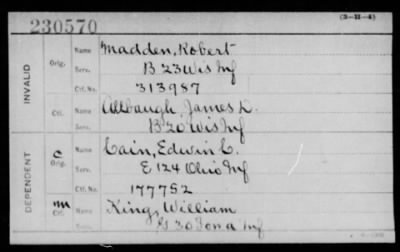 230570
(3-11-4)
INVALID
Orig.
Name Madden, Robert
Serv. B 23 Wis Inf
Ctf. No. 313987
Ctf.
Name Allbaugh, James L.
Serv. B 20 Wis Inf
DEPENDENT
C
Orig.
Name Cain, Edwin C.
Serv. E 124 Ohio Inf
Ctf. No. 177752
M
Ctf.
Name King, William
Serv. G 20 Iowa Inf